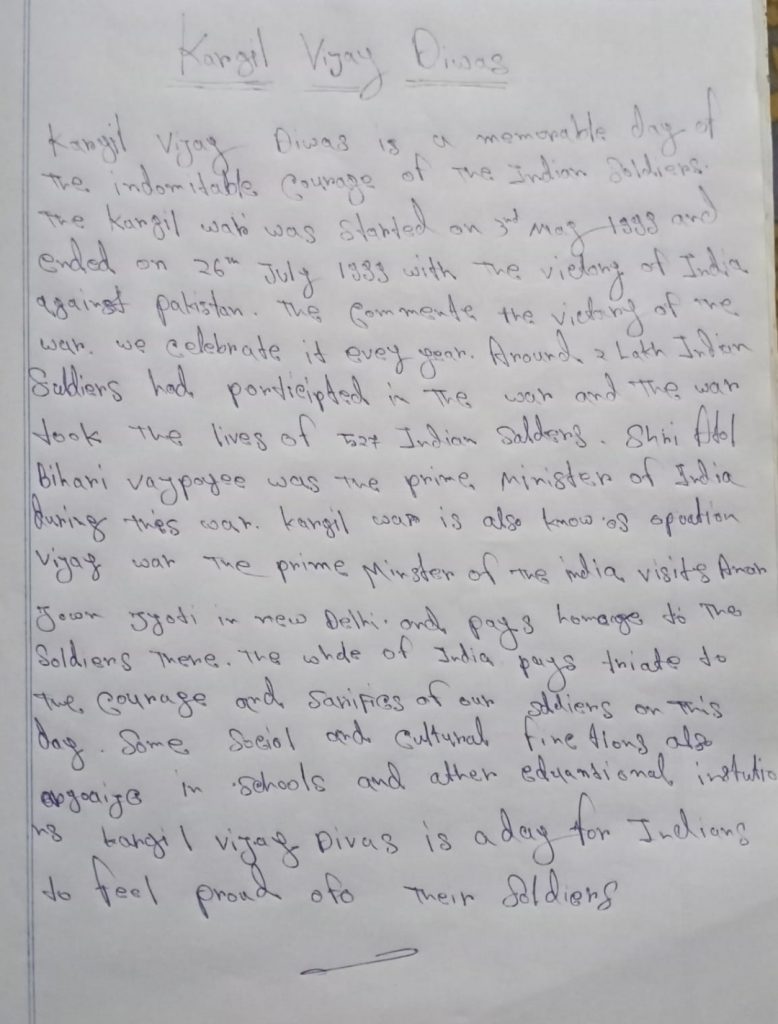 Kargil Vijay Diwas
Kargil Vijay Diwas is a memorable day of
The indomitable Courage of The Indian Soldiers.
The Kargil war was started on 3rd May 1999 and
ended on 26th July 1999 with The victory of India
against pakistan. The Commente the victory of The
war. we celebrate it evey year. Around 2 Lakh Indian
Soldiers had porticipted in The war and The war
took The lives of 527 Indian Salders. Shri Atol
Bihari vaypayee was The prime Minister of India
During thes war. kargil war is also know as opoction
Vijay war The prime Minster of The india visits Amar
Jown Jyoti in new Delhi. and pays homage to The
Soldiers There. The whole of India pays triate to
The Courage and Sanifies of our soldiers on This
day. Some Social and Cultural fine tions also
in schools and other institutio
ns kargil vijay Divas is a day for Indians
to feel proud ofo Their Soldiers